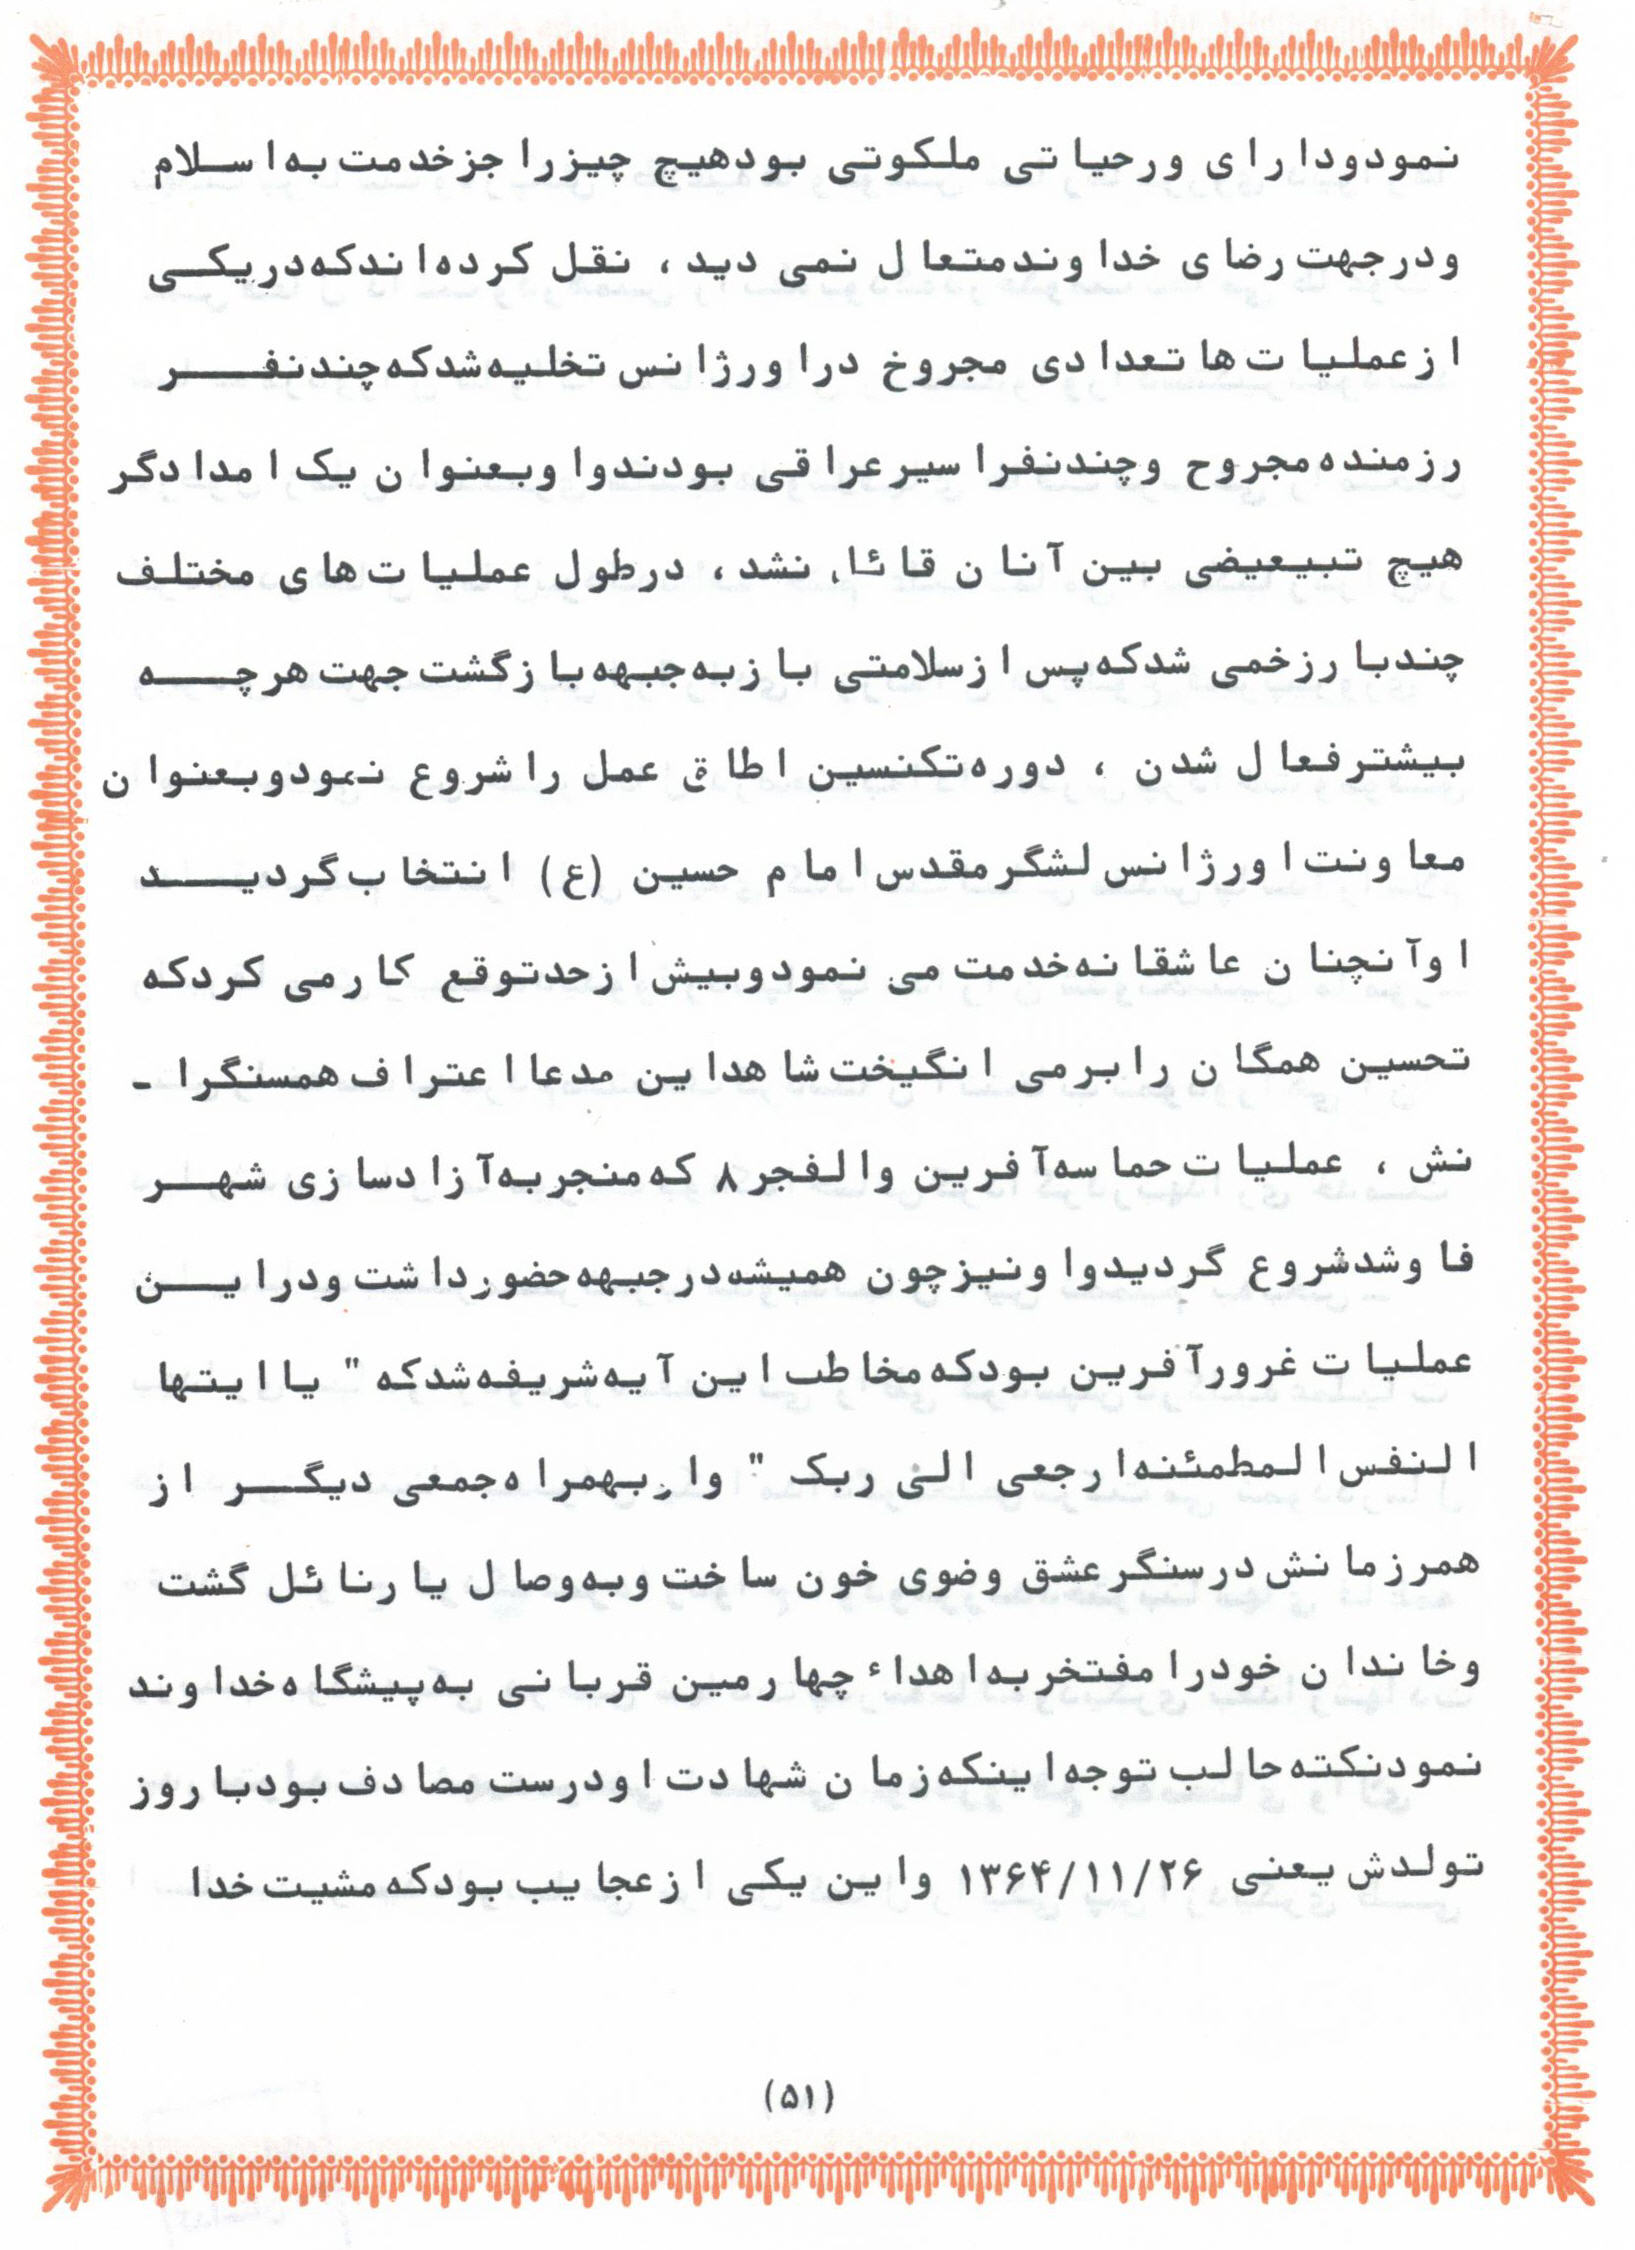 نمود ودارای ورحیاتی ملکوتی بود هیچ چیز را جز خدمت به اسلام
ودر جهت رضای خداوند متعال نمی دید ، نقل کرده اند که در یکی
از عملیات ها تعدادی مجروخ در اورژانس تخلیه شد که چند نفر
رزمنده مجروح وچند نفر اسیر عراقی بودند واو بعنوان یک امدادگر
هیچ تبیعیضی بین آنان قائل نشد ، در طول عملیات های مختلف
چند بار زخمی شد که پس از سلامتی باز به جبهه بازگشت جهت هر چه
بیشتر فعال شدن ، دوره تکنسین اطاق عمل را شروع نمود و بعنوان
معاونت اورژانس لشگر مقدس امام حسین (ع) انتخاب گردید
او آنچنان عاشقانه خدمت می نمود وبیش از حد توقع کار می کرد که
تحسین همگان را بر می انگیخت شاهد این مدعا اعتراف همسنگرا -
نش ، عملیات حماسه آفرین والفجر ۸ که منجر به آزادسازی شهر
فاو شد شروع گردید واو نیز چون همیشه در جبهه حضور داشت ودر این
عملیات غرورآفرین بود که مخاطب این آیه شریفه شد که " یا ایتها
النفس المطمئنه ارجعی الی ربک " واو بهمراه جمعی دیگر از
همرزمانش در سنگر عشق وضوی خون ساخت وبه وصال یار نائل گشت
وخاندان خود را مفتخر به اهداء چهارمین قربانی به پیشگاه خداوند
نمود نکته حالب توجه اینکه زمان شهادت او درست مصادف بود با روز
تولدش یعنی ۱۳۶۴/۱۱/۲۶ واین یکی از عجایب بود که مشیت خدا
(۵۱)